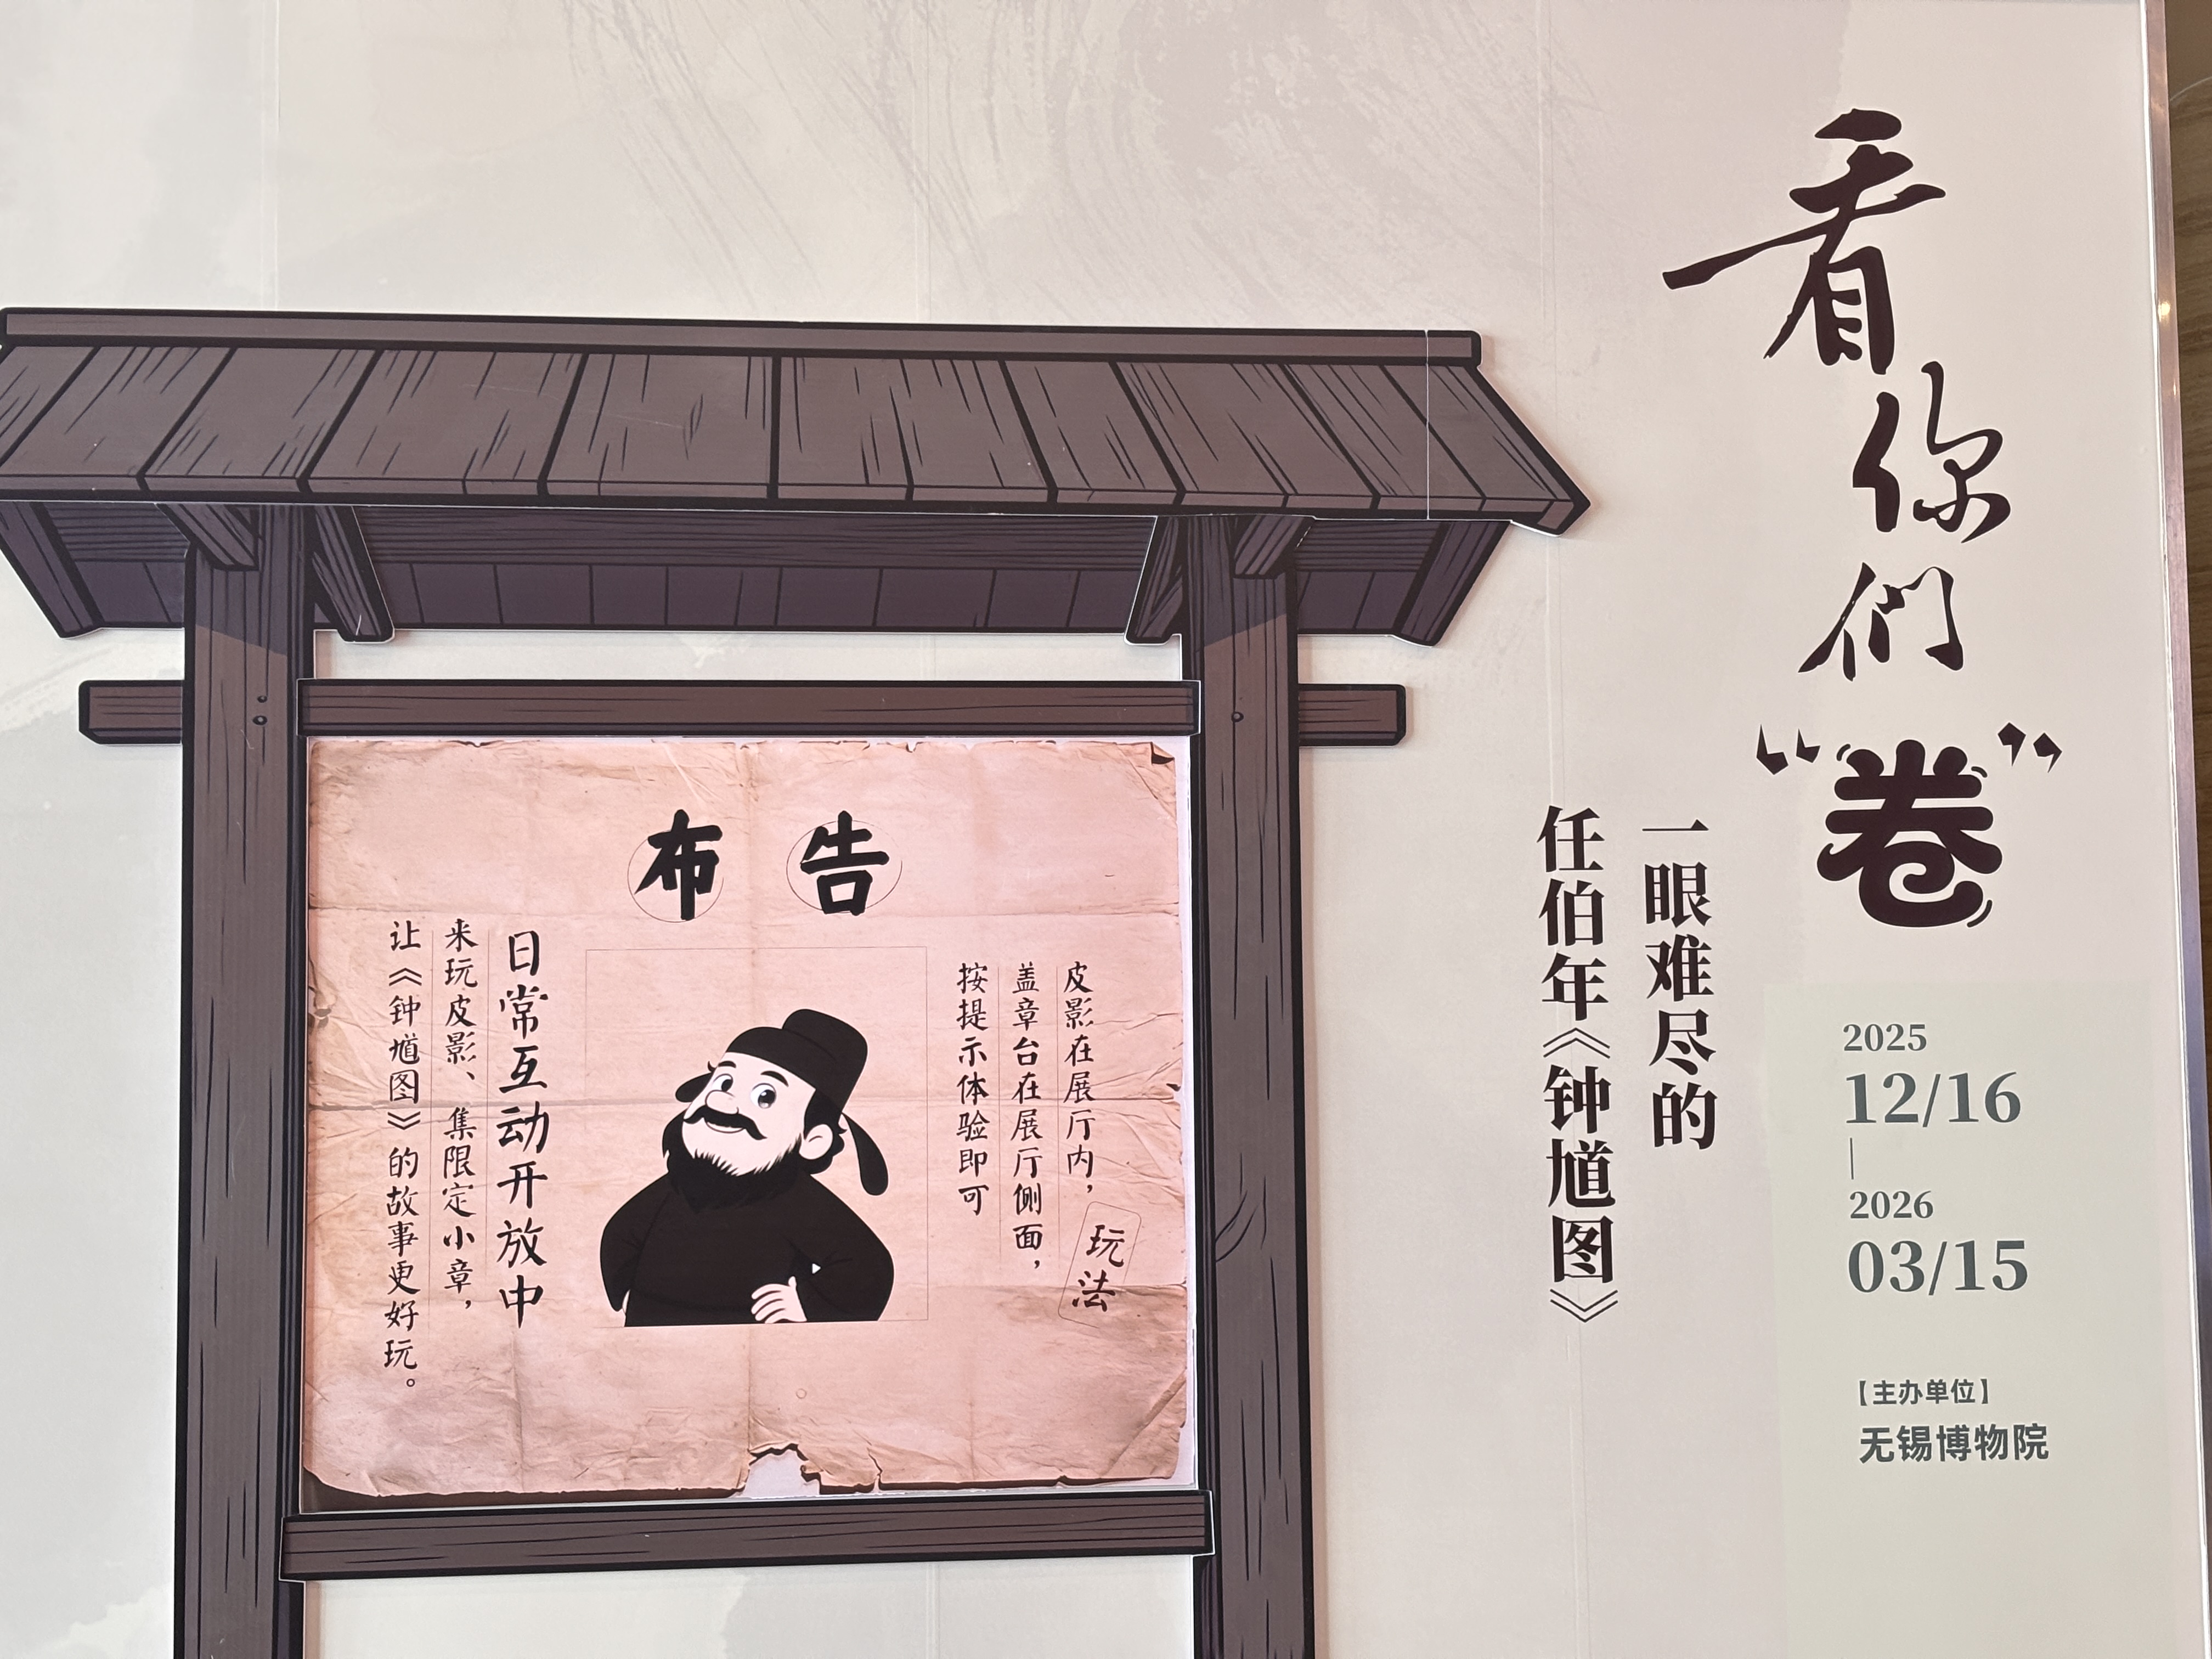 看你們“卷”
一眼难尽的
任伯年《钟馗图》
2025
12/16
|
2026
03/15
【主办单位】
无锡博物院
布告
日常互动开放中
来玩皮影、集限定小章，
让《钟馗图》的故事更好玩。
玩法
皮影在展厅内，
盖章台在展厅侧面，
按提示体验即可